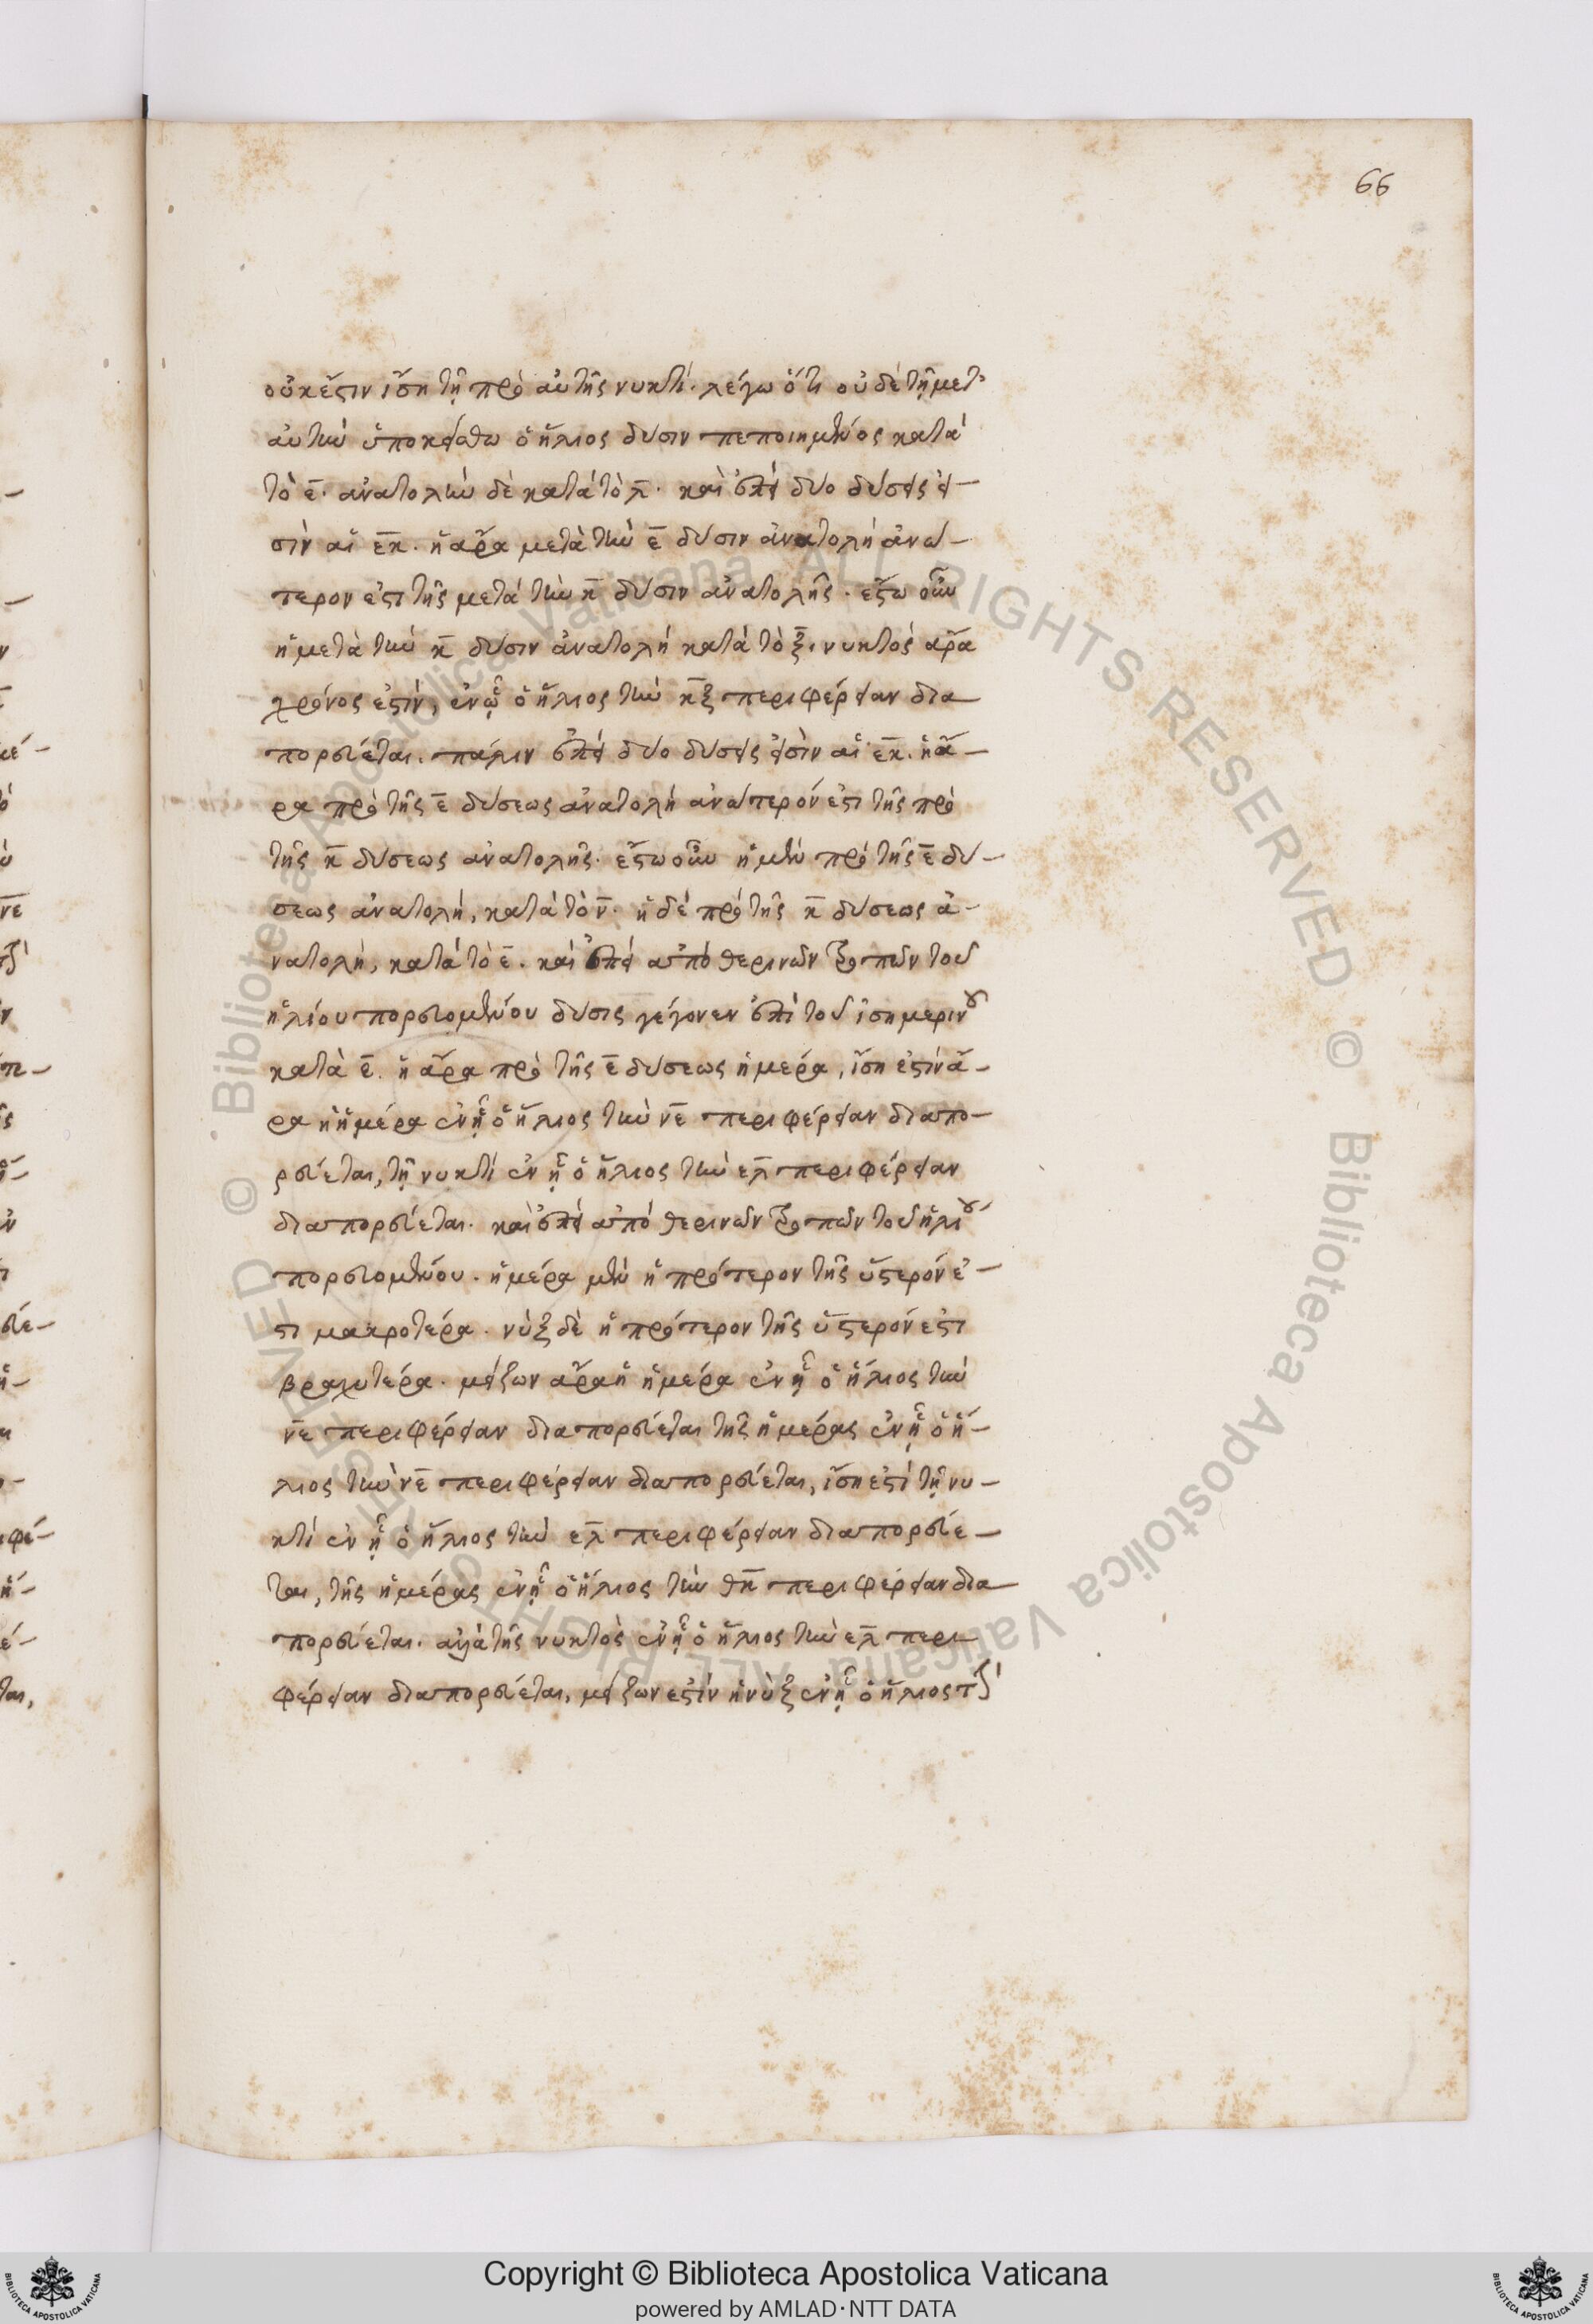 66
οὐκ ἔστιν ἴση τῇ πρὸ αὐτῆς νυκτί· λέγω ὅτι οὐδὲ τῇ μετ'
αὐτὴν ὑποκείσθω ὁ ἥλιος δύσιν πεποιημένος κατὰ
τὸ ε̄· ἀνατολὴν δὲ κατὰ τὸ λ̄· καὶ ἐπεὶ δύο δύσεις εἰ-
σὶν αἱ ε̄κ̄· ἡ ἄρα μετὰ τὴν ε̄ δύσιν ἀνατολὴ ἀνώ-
τερόν ἐστι τῆς μετὰ τὴν κ̄ δύσιν ἀνατολῆς· ἔστω οὖν
ἡ μετὰ τὴν κ̄ δύσιν ἀνατολὴ κατὰ τὸ ξ̄· νυκτὸς ἄρα
χρόνος ἐστίν, ἐν ᾧ ὁ ἥλιος τὴν κ̄ξ̄ περιφέρειαν δια
πορεύεται· πάλιν ἐπεὶ δύο δύσεις εἰσὶν αἱ ε̄κ̄· ἡ ἄ-
ρα πρὸ τῆς ε̄ δύσεως ἀνατολὴ ἀνώτερόν ἐστι τῆς πρὸ
τῆς κ̄ δύσεως ἀνατολῆς· ἔστω οὖν ἡ μὲν πρὸ τῆς ε̄ δύ-
σεως ἀνατολή, κατὰ τὸ ν̄· ἡ δὲ πρὸ τῆς κ̄ δύσεως ἀ-
νατολή, κατὰ τὸ ε̄· καὶ ἐπεὶ ἀπὸ θερινῶν τροπῶν τοῦ
ἡλίου πορευομένου δύσις γέγονεν ἐπὶ τοῦ ἰσημερινοῦ
κατὰ ε̄· ἡ ἄρα πρὸ τῆς ε̄ δύσεως ἡμέρα, ἴση ἐστὶν ἄ-
ρα ἡ ἡμέρα ἐν ᾗ ὁ ἥλιος τὴν ν̄ε̄ περιφέρειαν διαπο-
ρεύεται, τῇ νυκτὶ ἐν ᾗ ὁ ἥλιος τὴν ε̄λ̄ περιφέρειαν
διαπορεύεται· καὶ ἐπεὶ ἀπὸ θερινῶν τροπῶν τοῦ ἡλίου
πορευομένου· ἡμέρα μὲν ἡ πρότερον τῆς ὕστερόν ἐ-
στι μακροτέρα· νὺξ δὲ ἡ πρότερον τῆς ὕστερόν ἐστι
βραχυτέρα· μείζων ἄρα ἡ ἡμέρα ἐν ᾗ ὁ ἥλιος τὴν
ν̄ε̄ περιφέρειαν διαπορεύεται τῆς ἡμέρας ἐν ᾗ ὁ ἥ-
λιος τὴν ν̄ε̄ περιφέρειαν διαπορεύεται, ἴση ἐστὶ τῇ νυ-
κτὶ ἐν ᾗ ὁ ἥλιος τὴν ε̄λ̄ περιφέρειαν διαπορεύε-
ται, τῆς ἡμέρας ἐν ᾗ ὁ ἥλιος τὴν θ̄κ̄ περιφέρειαν δια
πορεύεται· ἀλλὰ τῆς νυκτὸς ἐν ᾗ ὁ ἥλιος τὴν ε̄λ̄ περι
φέρειαν διαπορεύεται, μείζων ἐστὶν ἡ νὺξ ἐν ᾗ ὁ ἥλιος
Copyright © Biblioteca Apostolica Vaticana
powered by AMLAD·NTT DATA